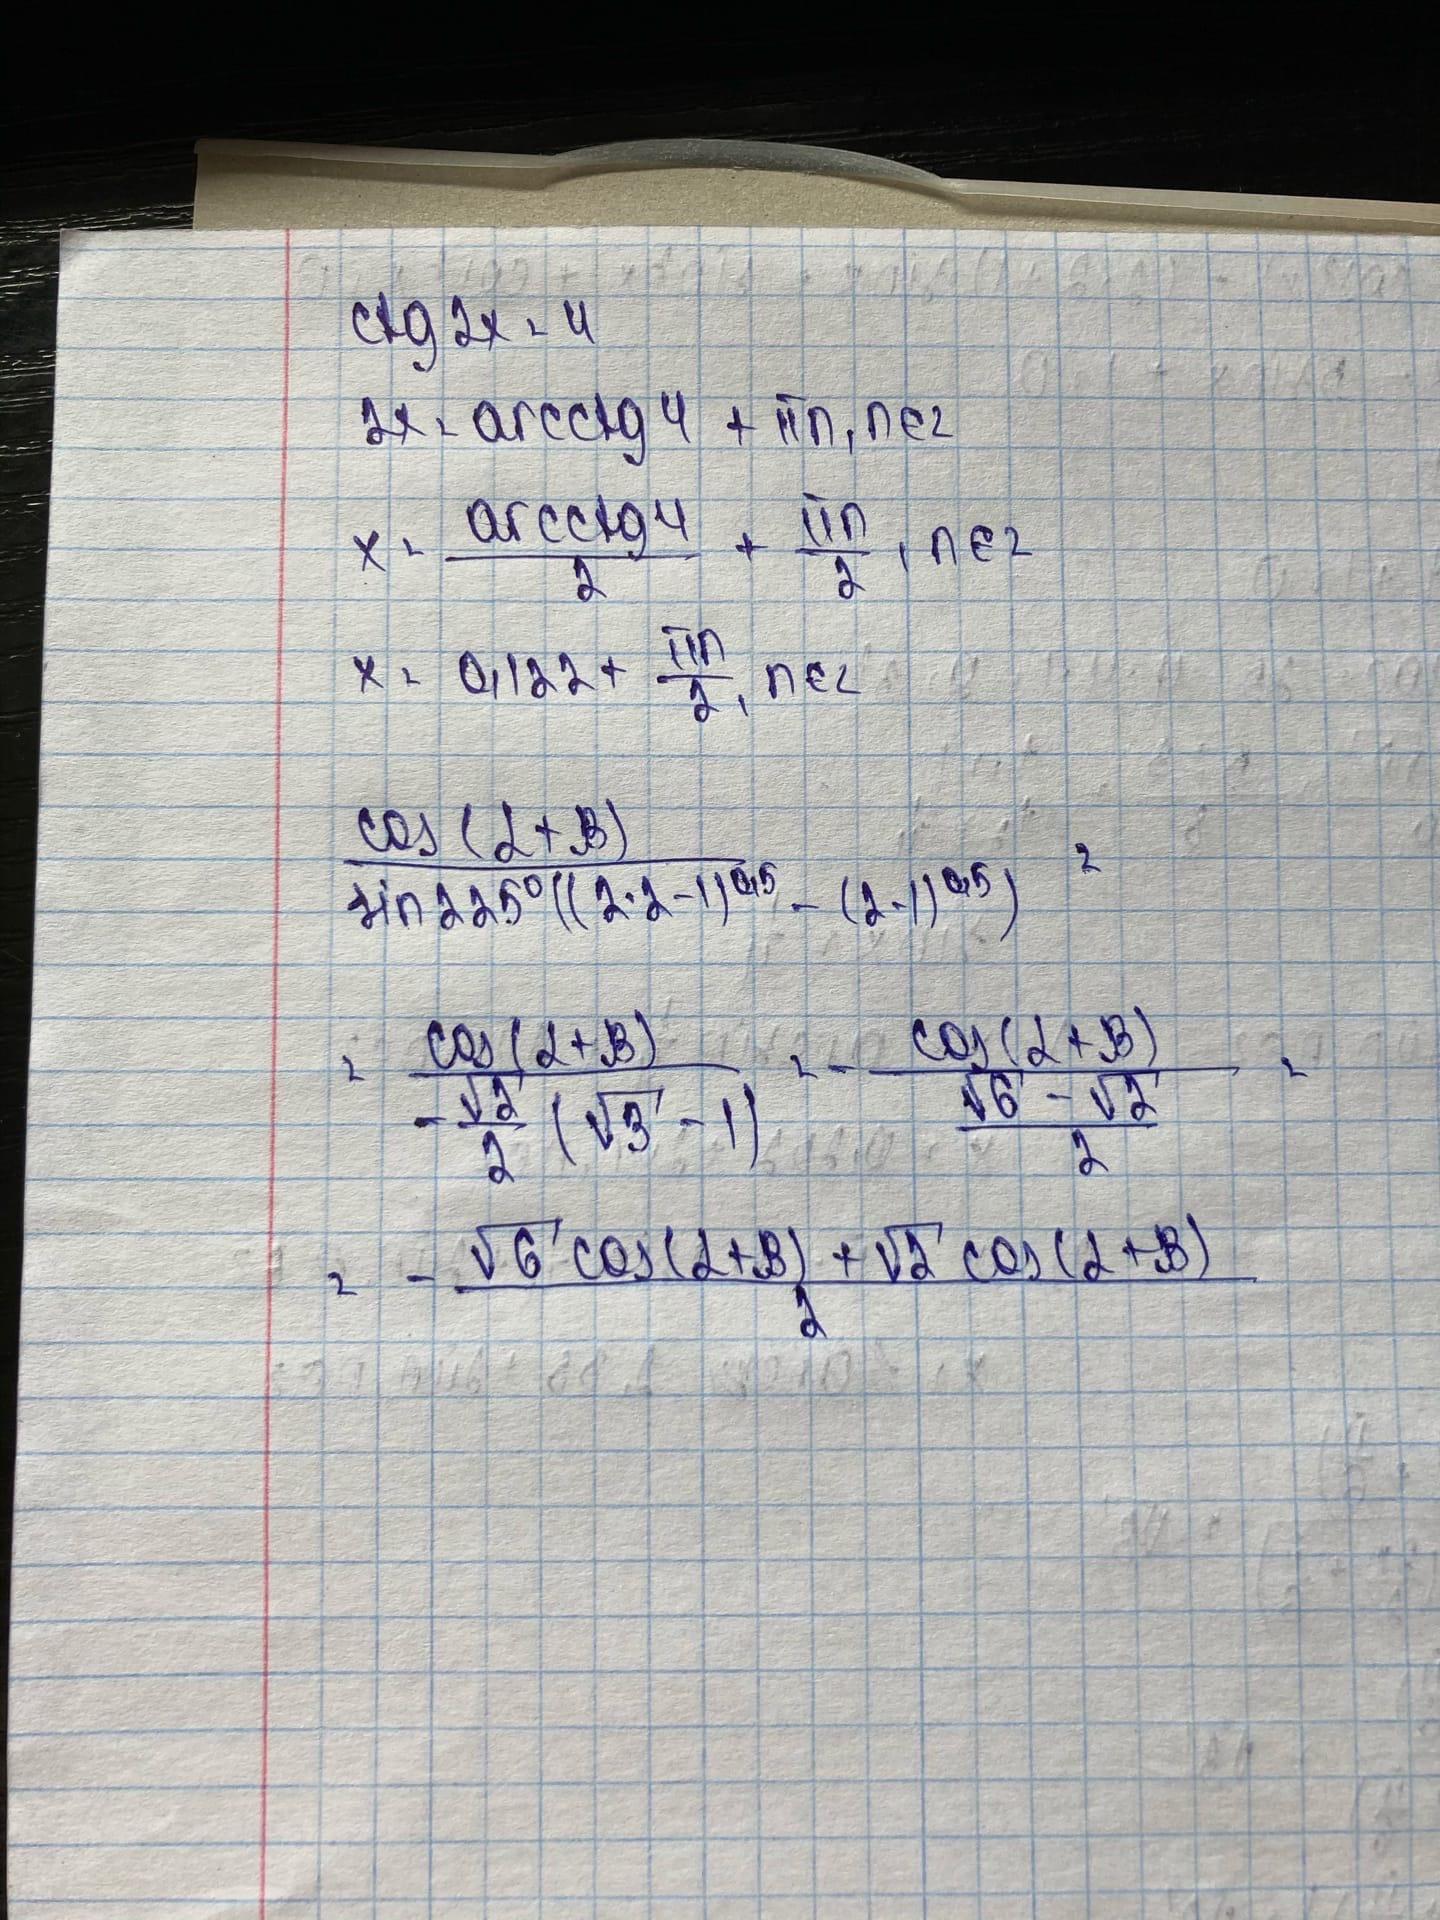 ctg 2x = 4
2x = arcctg 4 + πn, n ∈ z
x = arcctg 4 / 2 + πn / 2, n ∈ z
x = 0,122 + πn / 2, n ∈ z
cos(α+β) / sin 225°((2·2-1)^0,5 - (2-1)^0,5) =
= cos(α+β) / -√2/2 (√3 - 1) = - cos(α+β) / (√6 - √2)/2 =
= - (√6 cos(α+β) + √2 cos(α+β)) / 2